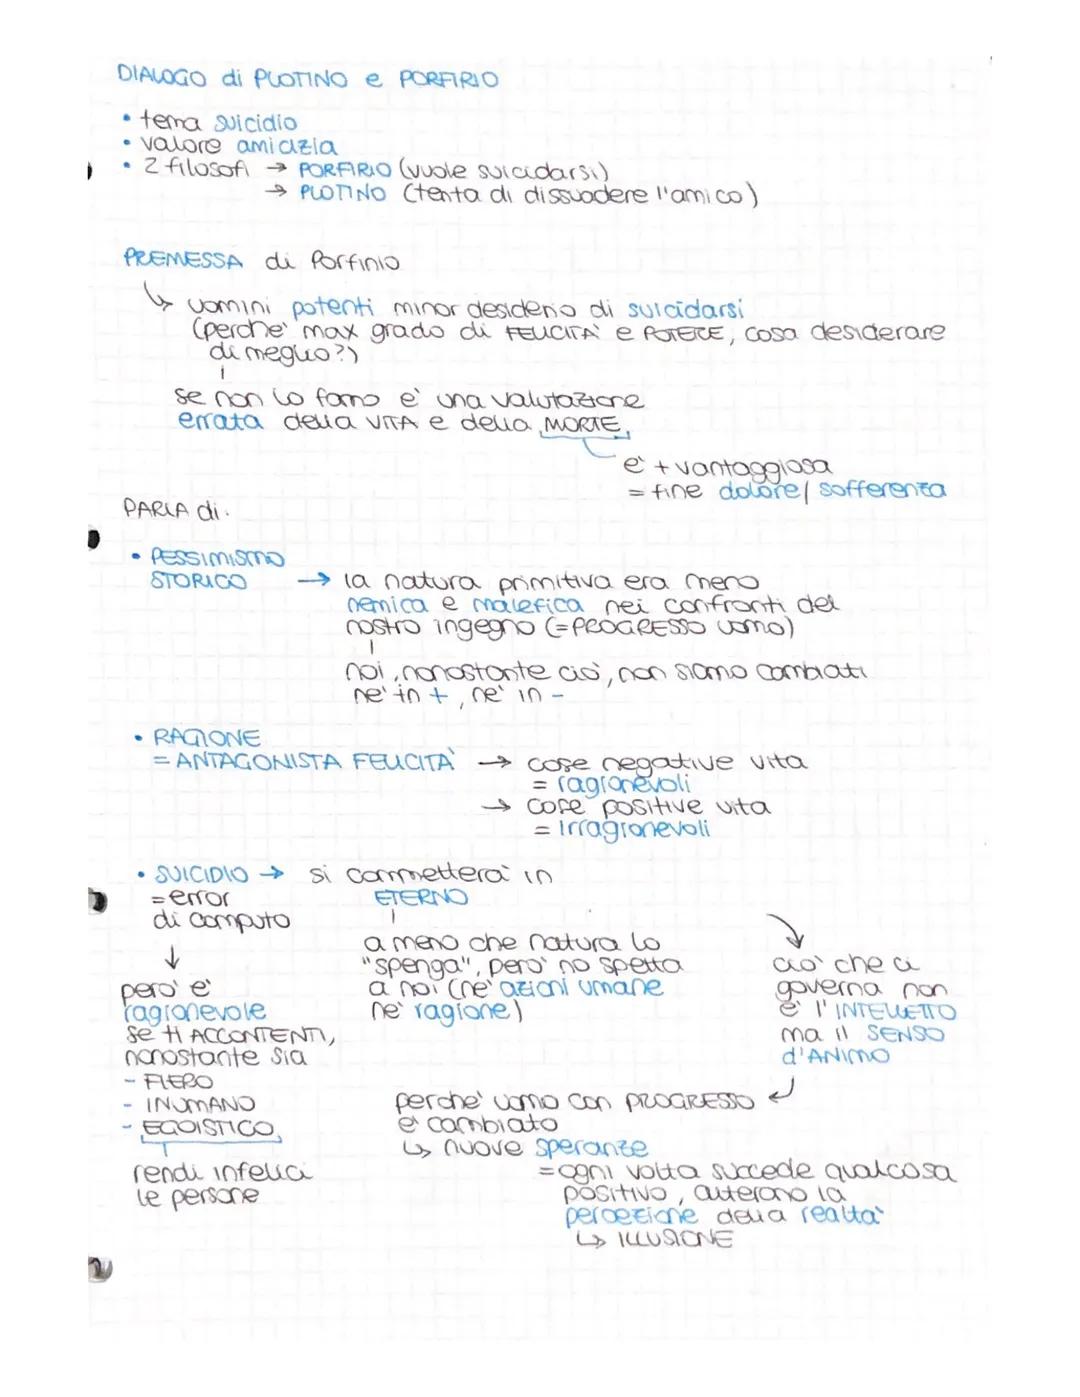 DIALOGO di PLOTINO e PORFIRIO
• tema suicidio
• valore amicizia
• 2 filosofi → PORFIRIO (vuole suicidarsi)
→ PLOTINO (tenta di dissuadere l'amico)
PREMESSA di Porfirio
↳ uomini potenti minor desiderio di suicidarsi
(perche' max grado di FELICITA' e POTERE, cosa desiderare
di meglio?)
se non lo fanno e' una valutazione
errata della VITA e della MORTE
e' + vantaggiosa
= fine dolore / sofferenza
PARLA di:
• PESSIMISMO
STORICO → la natura primitiva era meno
nemica e malefica nei confronti del
nostro ingegno (= PROGRESSO uomo)
noi, nonostante cio', non siamo cambiati
ne' in +, ne' in -
• RAGIONE
= ANTAGONISTA FELICITA' → cose negative vita
= ragionevoli
→ cose positive vita
= irragionevoli
• SUICIDIO → si commettera' in
= error ETERNO
di computo
↓
pero' e'
ragionevole
se ti ACCONTENTI,
nonostante sia
- FIERO
- INUMANO
- EGOISTICO
rendi infelici
le persone
a meno che natura lo
"spenga", pero' no spetta
a noi (ne' azioni umane
ne' ragione)
cio' che ci
governa non
e' l'INTELLETTO
ma il SENSO
d'ANIMO
perche' uomo con PROGRESSO
e' cambiato
↳ nuove speranze
= ogni volta succede qualcosa
positivo, alterano la
percezione della realta'
↳ ILLUSIONE